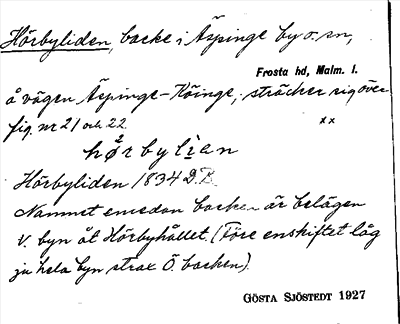 Hörbyliden, backe i Äspinge by o. sn,
Frosta hd, Malm. l.
å vägen Äspinge-Köinge, sträcker sig över
fig. nr 21 och 22. x x
hørbylìən
Hörbyliden 1834 D.B.
Namnet emedan backen är belägen
V. byn åt Hörbyhållet. (Före enskiftet låg
ju hela byn strax Ö. backen).
GÖSTA SJÖSTEDT 1927